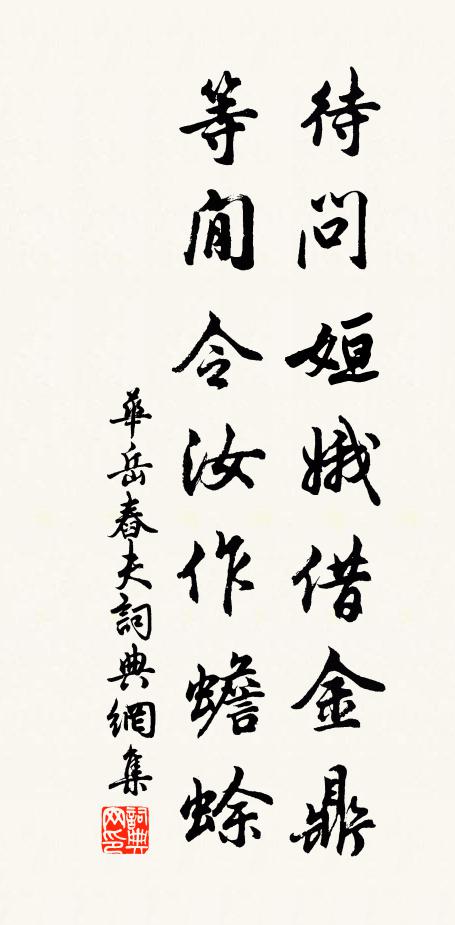 待問姮娥借金鼎
等閒令汝作蟾蜍
華岳春夫詞典網集
詞典网印